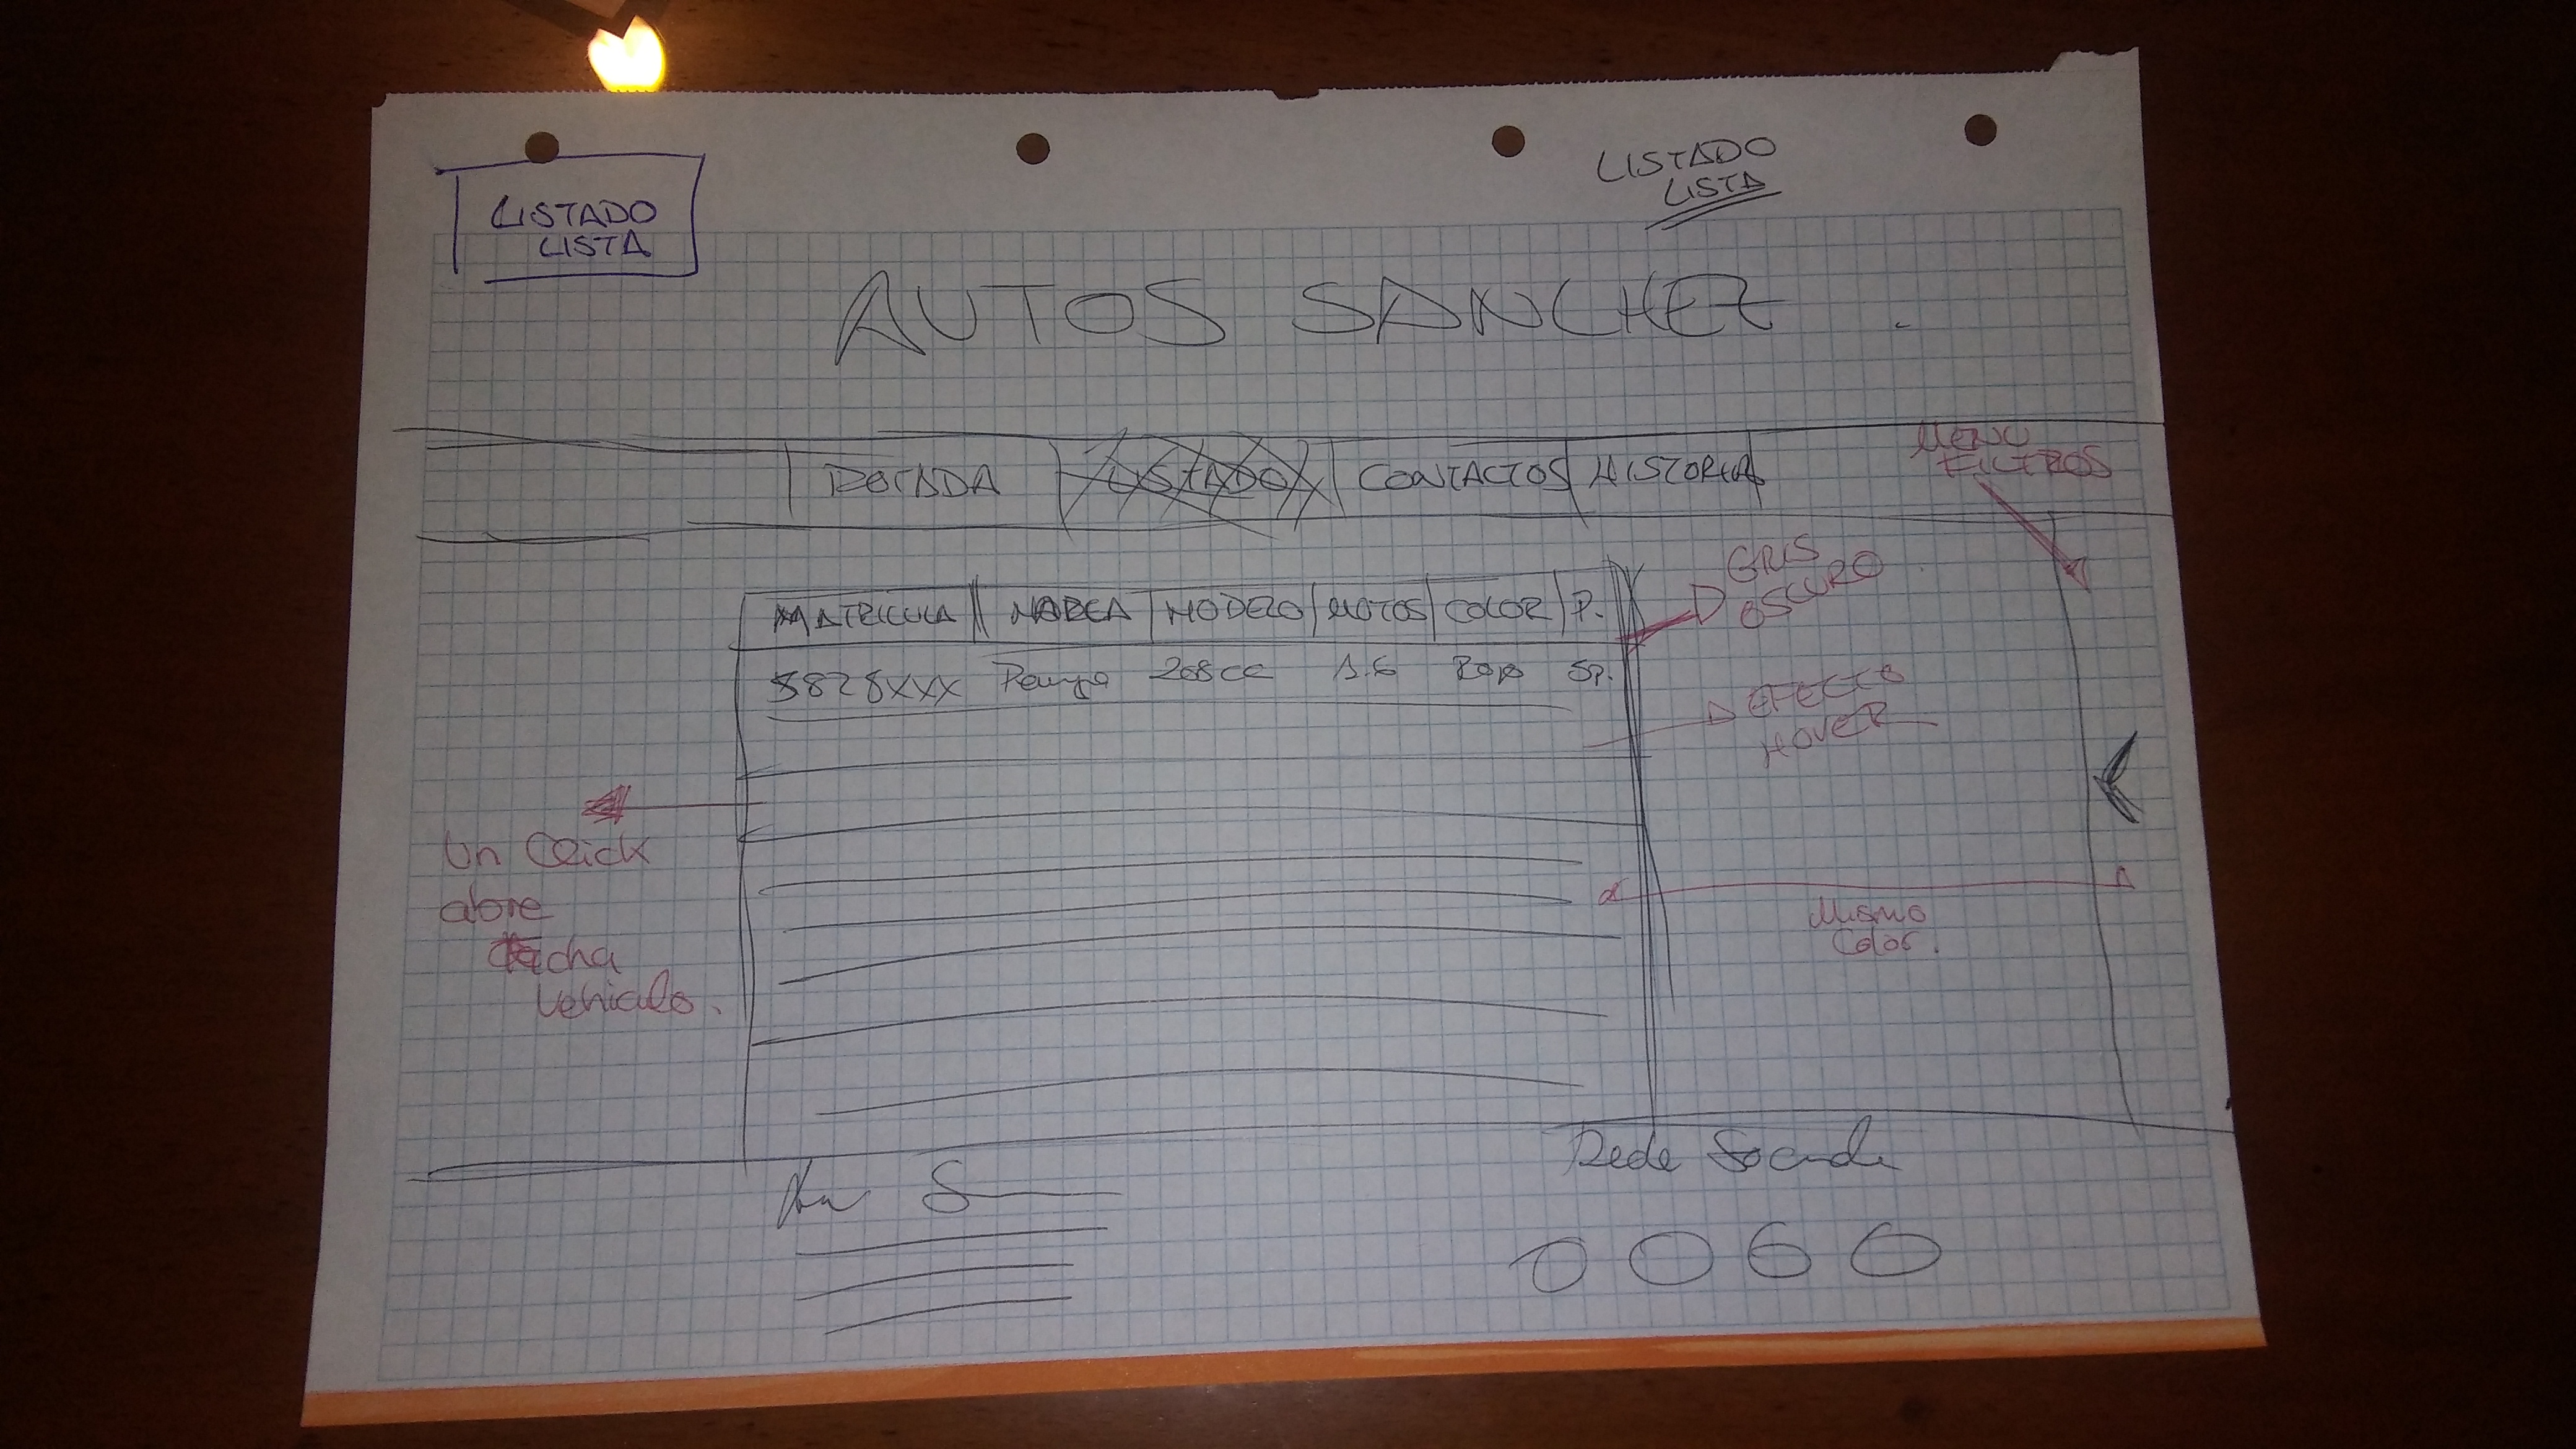 LISTADO
LISTA
LISTADO
LISTA
AUTOS SANCHEZ
PORTADA LISTADO CONTACTOS HISTORIA
MENU
FILTROS
MATRICULA MARCA MODELO MOTOS COLOR P.
8828XXX 1.6 Rojo SP.
GRIS
OSCURO
EFECTO
HOVER
Un Click
abre
ficha
Vehiculo.
Mismo
Color.
Rede Sociale